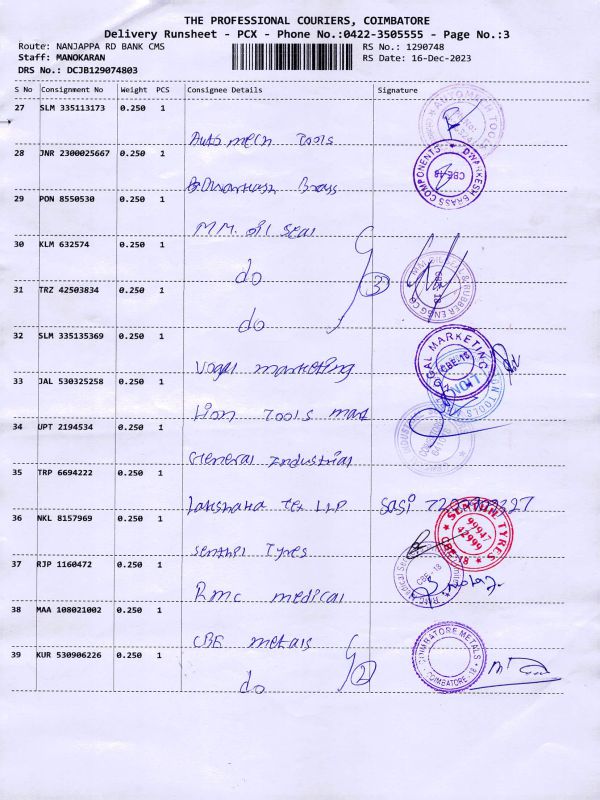 THE PROFESSIONAL COURIERS, COIMBATORE
Delivery Runsheet - PCX - Phone No.:0422-3505555 - Page No.:3
Route: NANJAPPA RD BANK CMS RS No.: 1290748
Staff: MANOKARAN RS Date: 16-Dec-2023
DRS No.: DCJB129074803
S No Consignment No Weight PCS Consignee Details Signature
27 SLM 335113173 0.250 1
Auto mech Tools
28 JNR 2300025667 0.250 1
DWARKESH BRASS COMPONENTS CBE-18
29 PON 8550530 0.250 1
M.M. oil Seal
30 KLM 632574 0.250 1
do 3
31 TRZ 42503834 0.250 1
do
32 SLM 335135369 0.250 1
MARKETING CBE-18
Vogal marketing
33 JAL 530325258 0.250 1
Lion Tools mart
34 UPT 2194534 0.250 1
General Industrial
35 TRP 6694222 0.250 1
Tex LLP Sasi
36 NKL 8157969 0.250 1
TYRES 99947 42999 CBE-18
Senthil Tyres
37 RJP 1160472 0.250 1
Rmc medical
38 MAA 108021002 0.250 1
CBE metals
COIMBATORE METALS COIMBATORE - 18
39 KUR 530906226 0.250 1
do 2